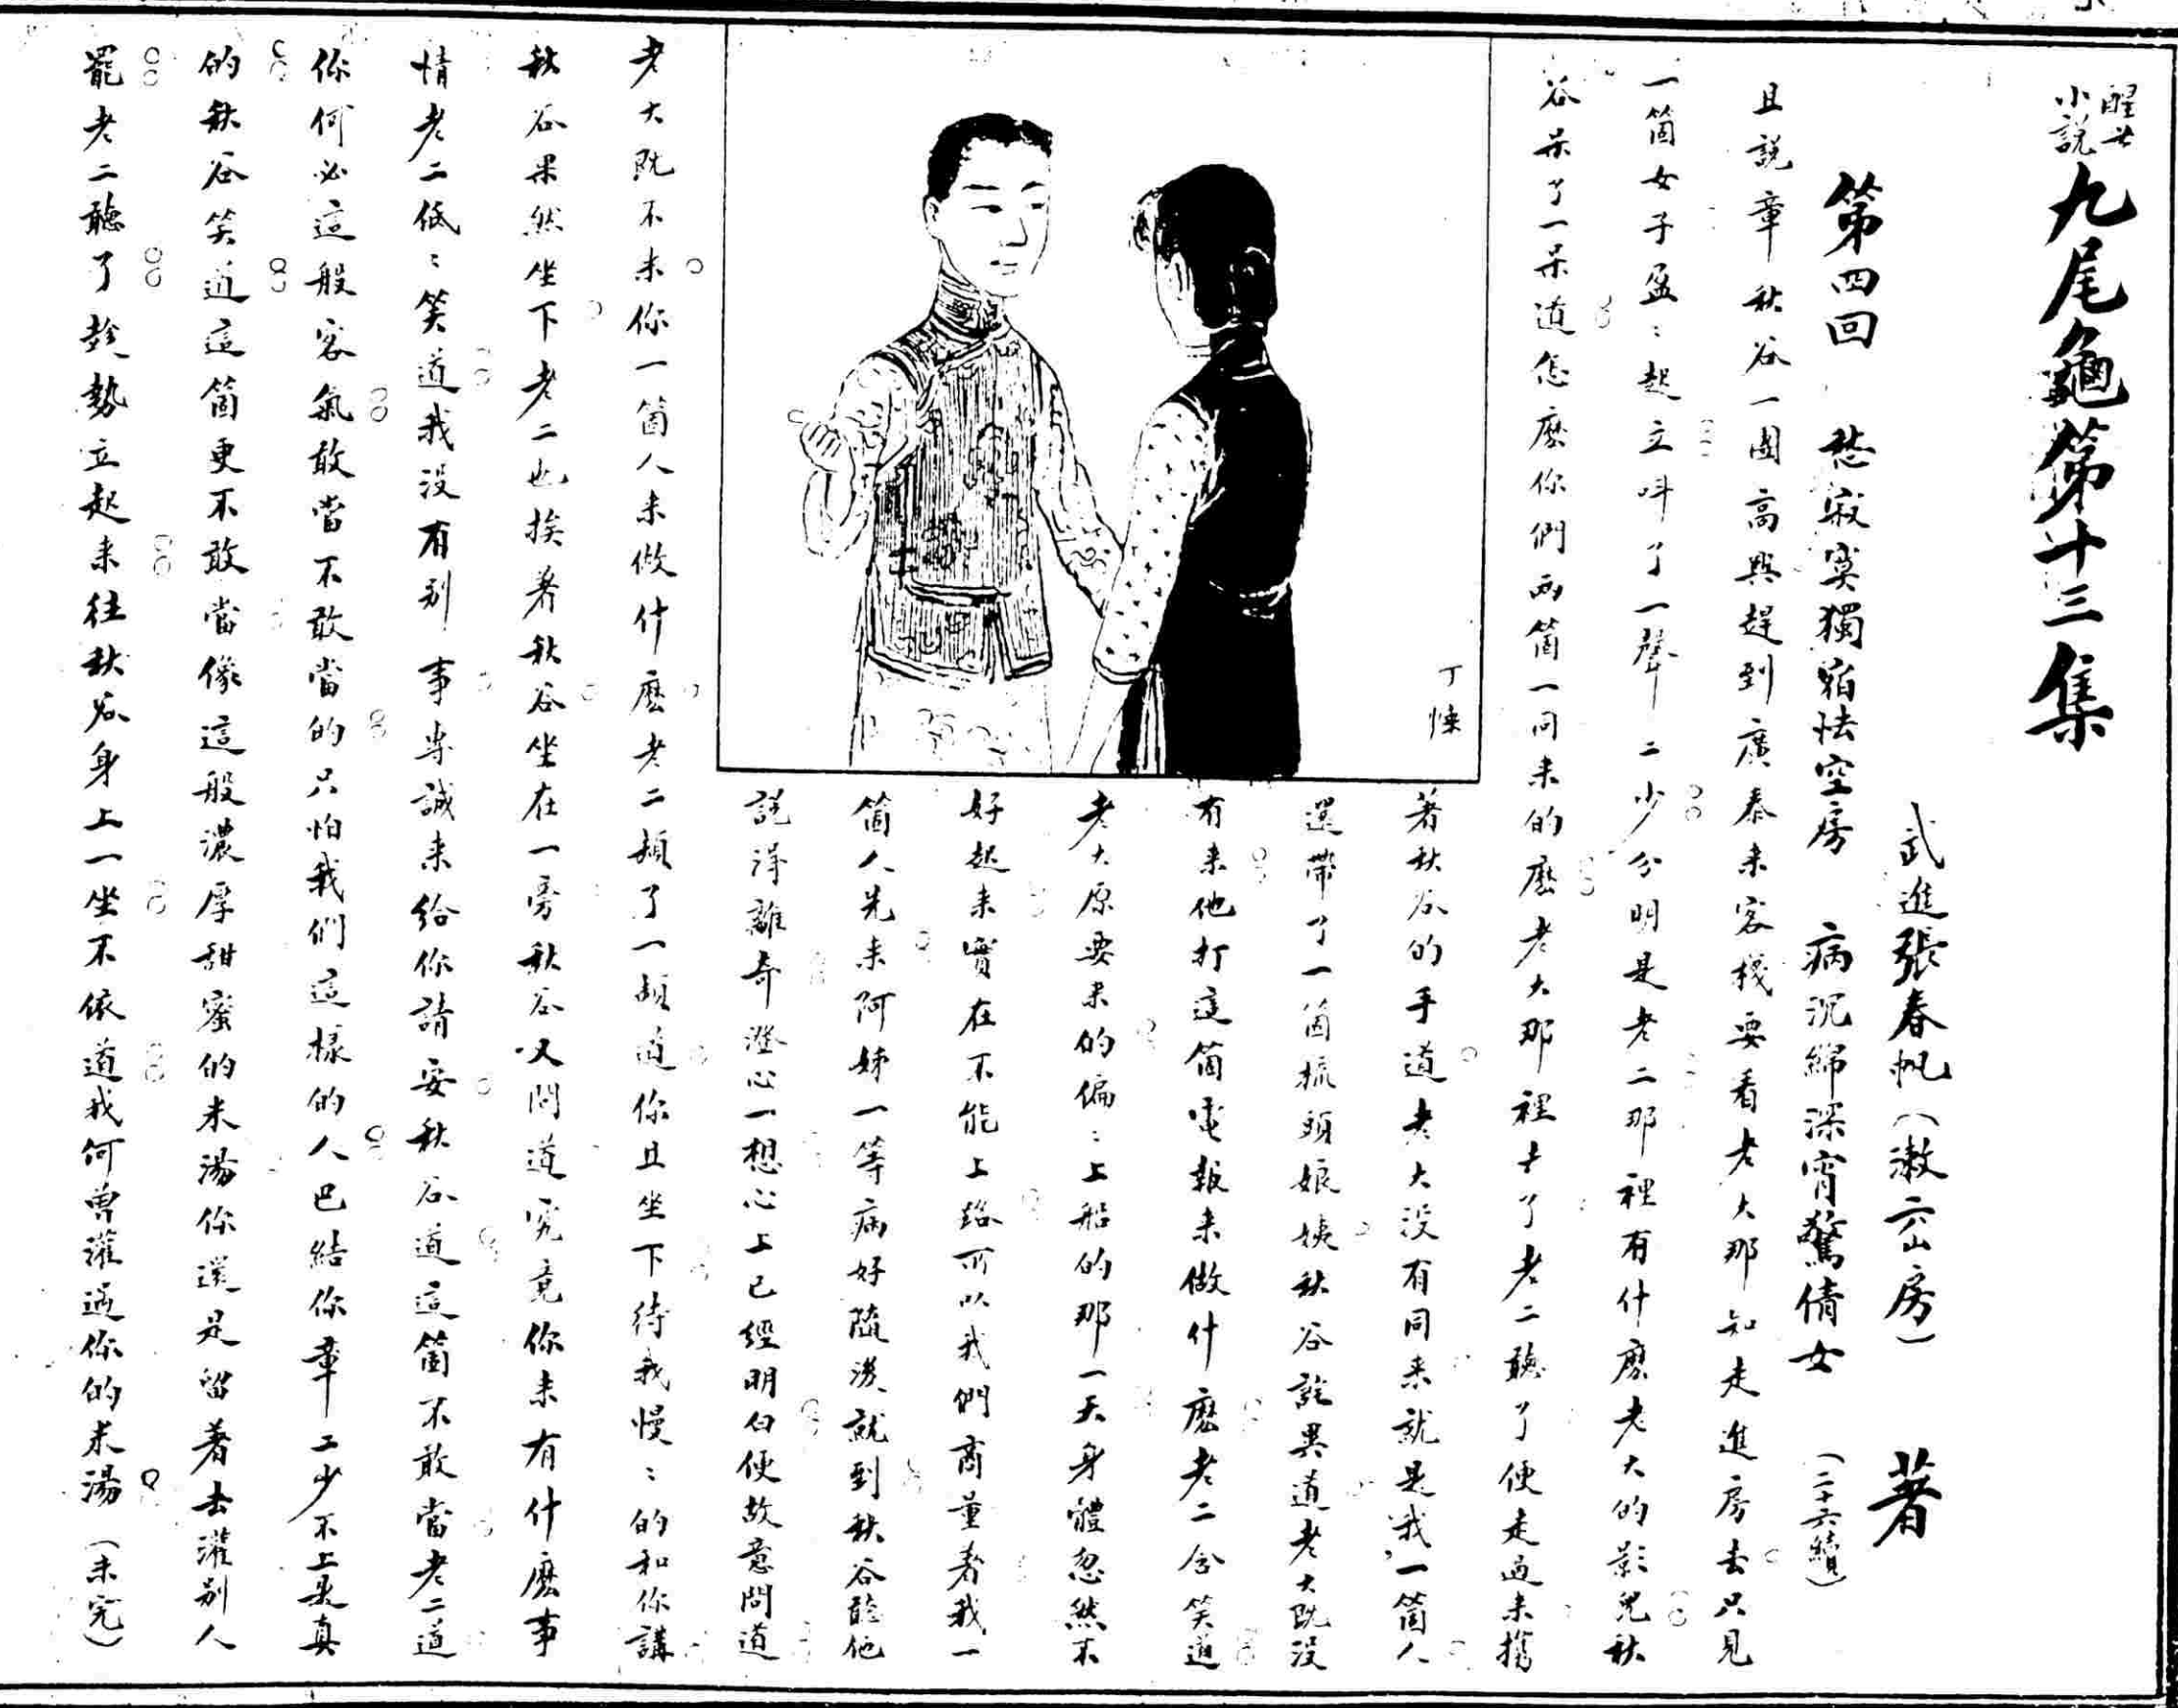 醒世小説
九尾龜第十三集
武進張春帆（漱六山房）著
第四回　愁寂寞獨宿怯空房　病沉綿深宵驚倩女（二十六續）
且説章秋谷一團高興趕到廣泰來客棧要看老大那知走進房去只見
一箇女子盈〻起立叫了一聲二少分明是老二那裡有什麽老大的影兒秋
谷呆了一呆道怎麽你們兩箇一同来的麽老大那裡去了老二聽了便走過来攜
著秋谷的手道老大沒有同来就是我一箇人
還帶了一箇梳頭娘姨秋谷詫異道老大既没
有来他打這箇電報来做什麽老二含笑道
老大原要来的偏〻上船的那一天身體忽然不
好起来實在不能上路所以我們商量著我一
箇人先来阿姊一等病好隨後就到秋谷聽他
説得離奇澄心一想心上已經明白便故意問道
老大既不来你一箇人来做什麽老二頓了一頓道你且坐下待我慢〻的和你講
秋谷果然坐下老二也挨着秋谷坐在一旁秋谷又問道究竟你来有什麽事
情老二低〻笑道我没有别事專誠来給你請安秋谷道這箇不敢當老二道
你何必這般客氣敢當不敢當的只怕我們這樣的人巴結你章二少不上是真
的秋谷笑道這箇更不敢當像這般濃厚甜蜜的米湯你還是留着去灌别人
罷老二聽了趁勢立起来往秋谷身上一坐不依道我何曾灌過你的米湯（未完）
丁悚